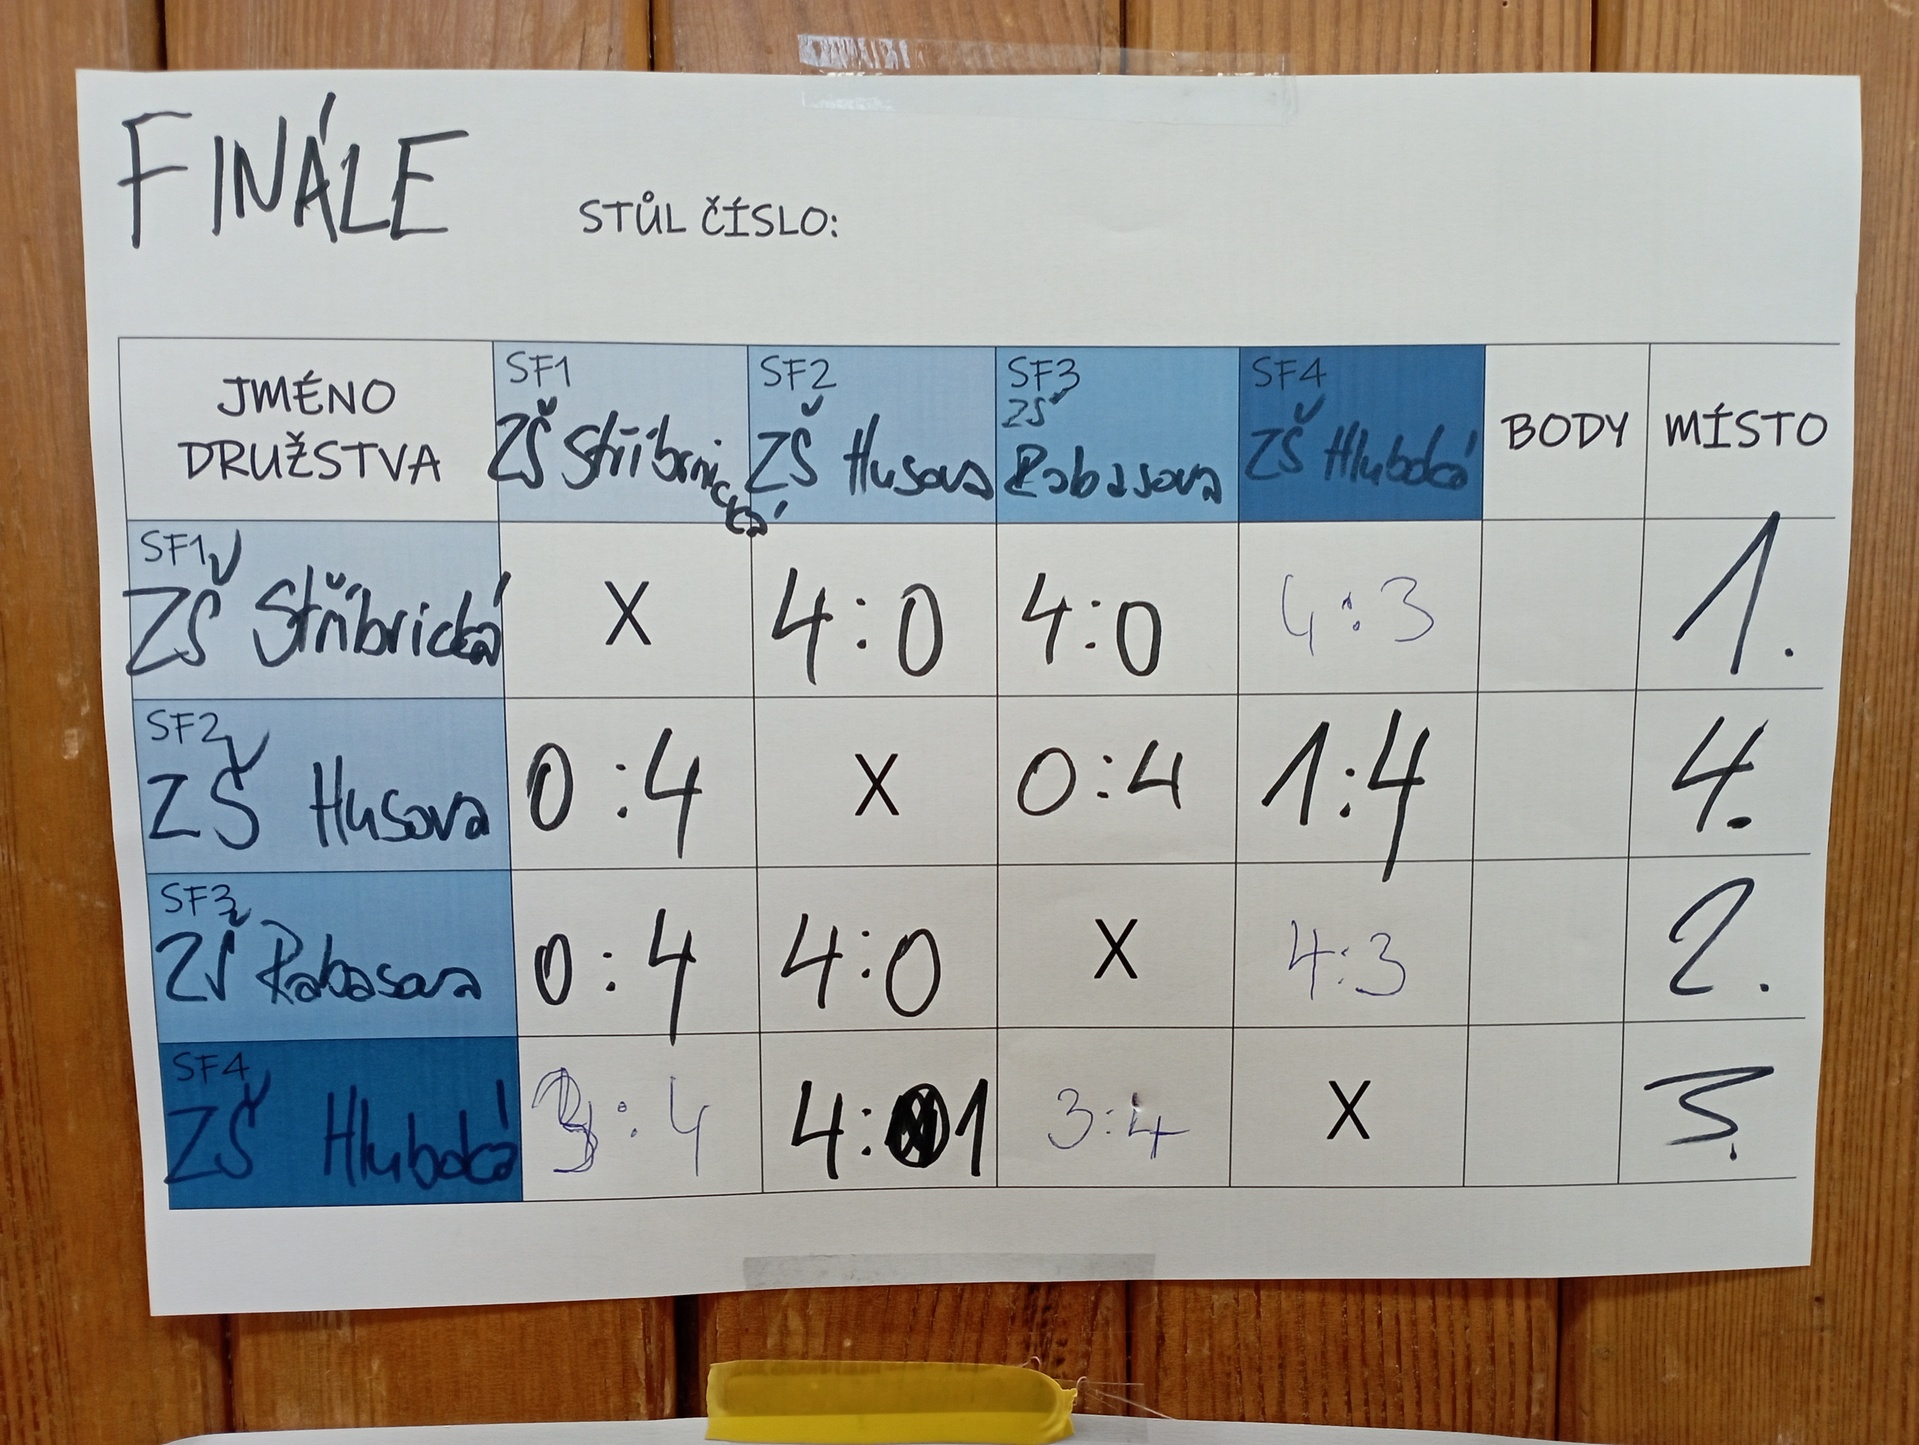 FINÁLE
STŮL ČÍSLO:
JMÉNO DRUŽSTVA SF1 ZŠ Stříbrnická SF2 ZŠ Husova SF3 ZŠ Rabasova SF4 ZŠ Hluboká BODY MÍSTO
SF1 ZŠ Stříbrická X 4:0 4:0 4:3 1.
SF2 ZŠ Husova 0:4 X 0:4 1:4 4.
SF3 ZŠ Rabasova 0:4 4:0 X 4:3 2.
SF4 ZŠ Hluboká 3:4 4:1 3:4 X 3.